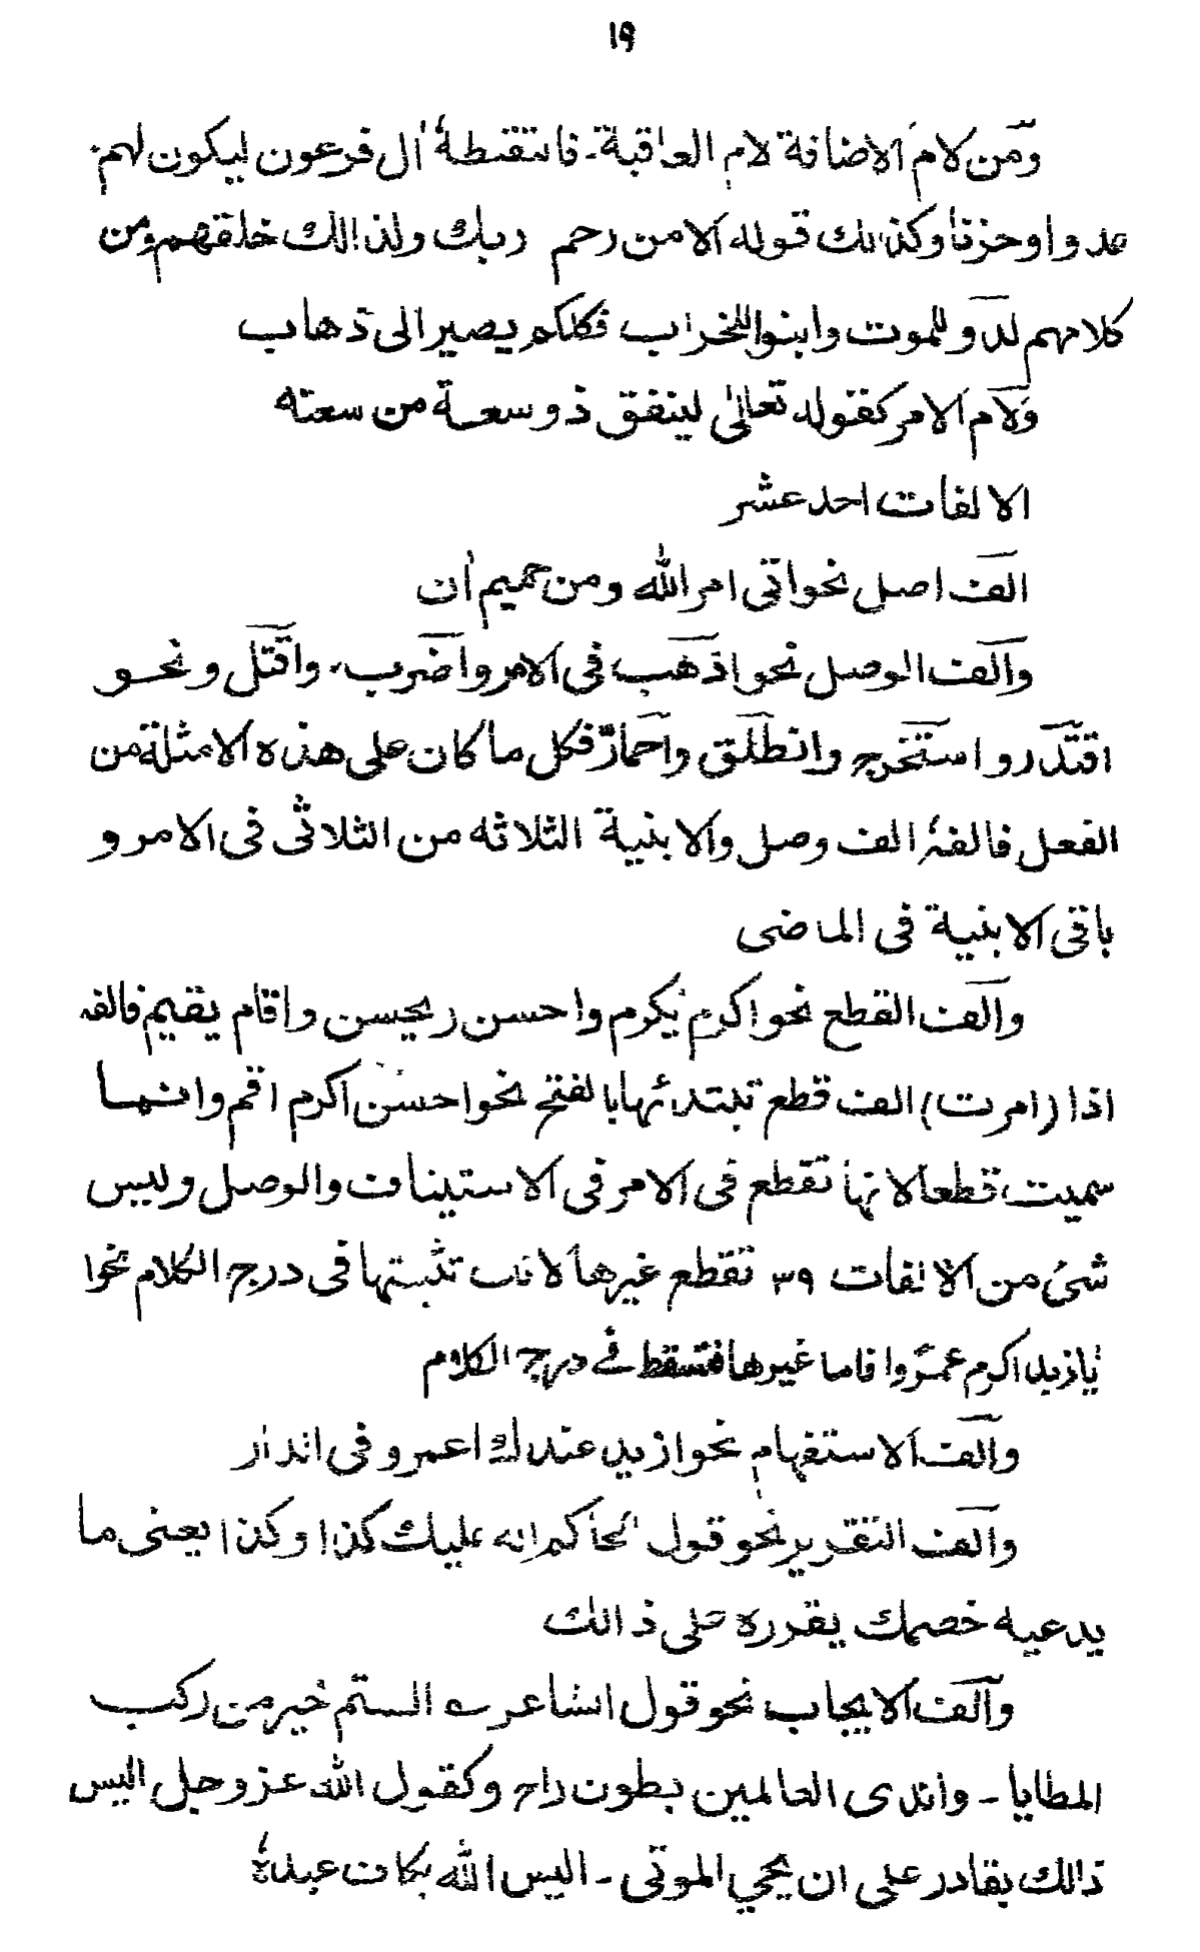 ١٩
ومن لام الاضافة لام العاقبة ـ فالتقطهٗ اٰل فرعون ليكون لهم
عدوا وحزنا وكذالك قوله الا من رحم ربك ولذالك خلقهم ومن
كلامهم لدوللموت وابنواللخراب فكلكم يصير الى ذهاب
ولام الامر كقوله تعالىٰ لينفق ذوسعة من سعته
الالفات احد عشر
الف اصل نحو اتى امر الله ومن حميم اٰن
والف الوصل نحو اذهب فى الامر واضرب، واقتل ونحو
اقتدر و استخرج وانطلق واحمارّ فكل ما كان على هذه الامثلة من
الفعل فالفهٗ الف وصل والابنية الثلاثه من الثلاثى فى الامر و
باقى الابنية فى الماضى
والف القطع نحو اكرم يكرم واحسن ريحسن واقام يقيم فالفه
اذا (امرت) الف قطع تبتدئها بالفتح نحو احسن اكرم اقم وانما
سميت قطعا لانها تقطع فى الامر فى الاستيناف والوصل وليس
شئ من الالفات ٣٩ تقطع غيرها لانك تثبتها فى درج الكلام نحوا
يازيد اكرم عمرًوا فاما غيرها فتسقط فے درج الكلام
والف الاستفهام نحو ازيد عندك اعمرو فى اندار
والف التقرير نحو قول الحاكم انه عليك كذا وكذا يعنى ما
يدعيه خصمك يقرره على ذالك
والف الايجاب نحو قول الشاعر ے الستم خير من ركب
المطايا ـ واندى العالمين بطون راح وكقول الله عزوجل اليس
ذالك بقادر على ان يحي الموتى ـ اليس الله بكاف عبدهٗ